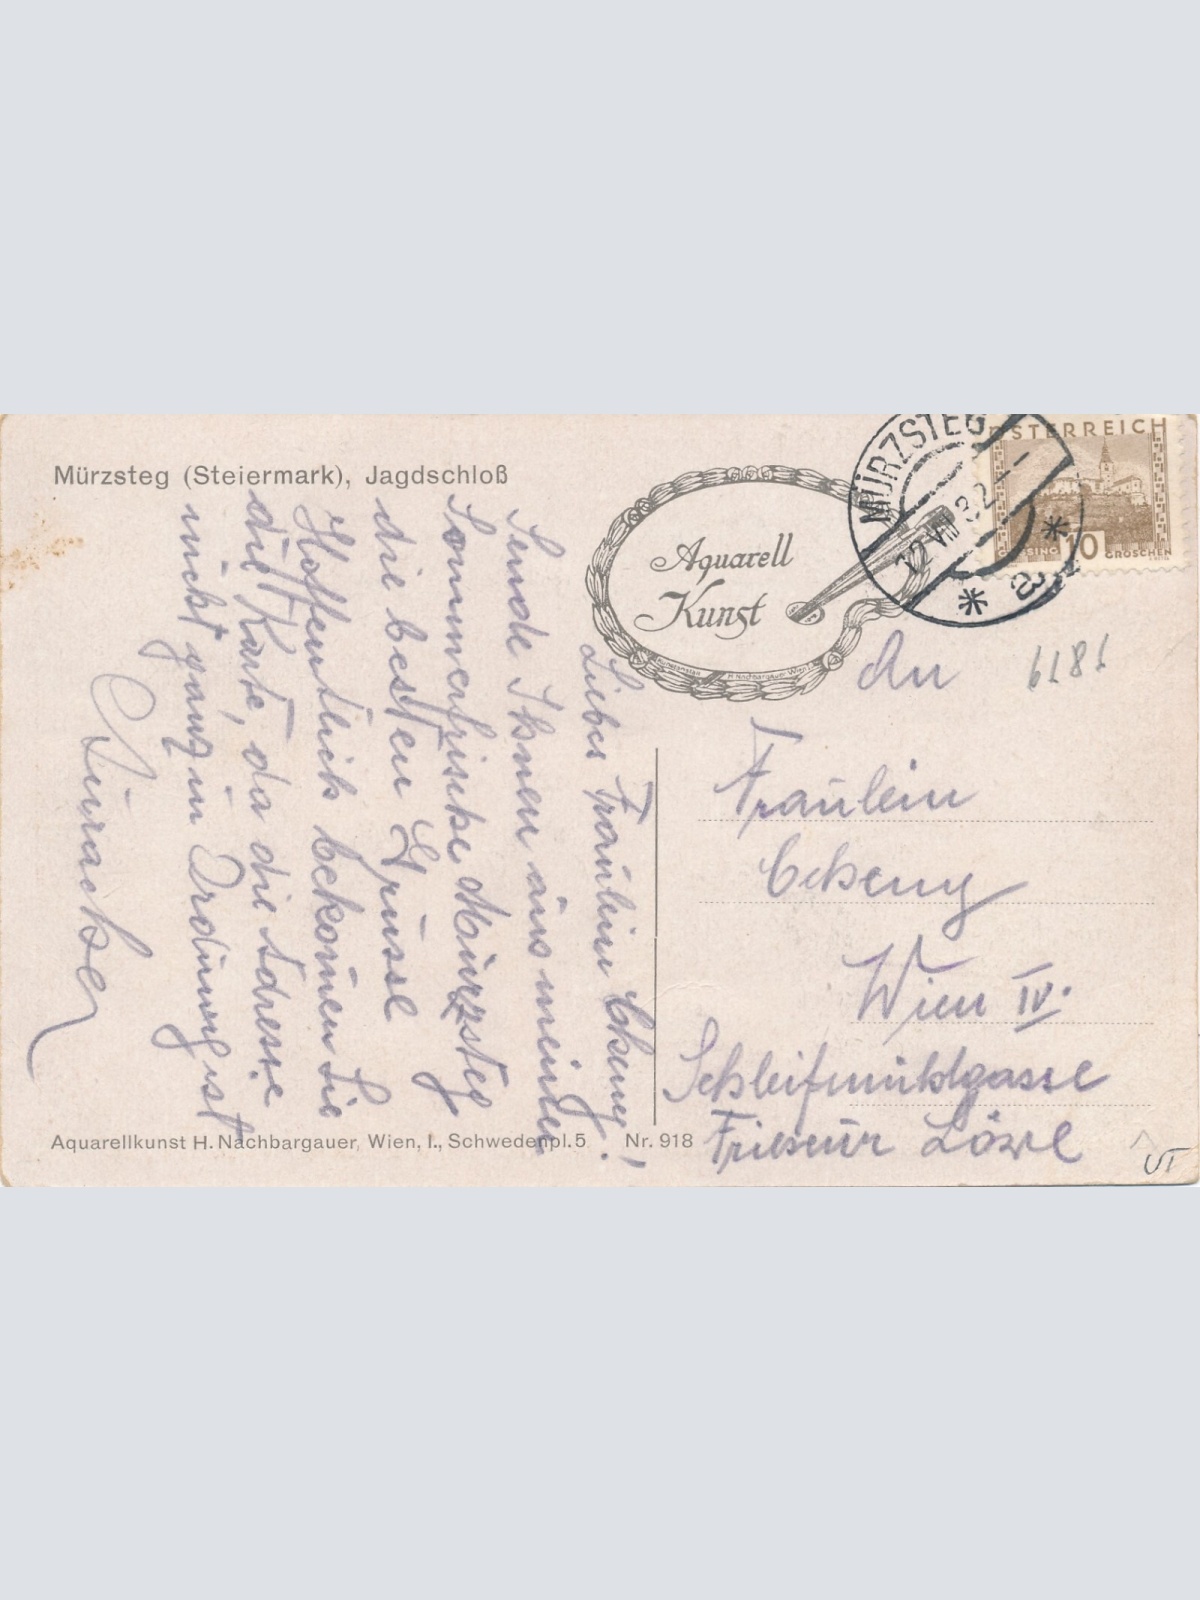 Mürzsteg (Steiermark), Jagdschloß
Aquarell
Kunst
Kunstanstalt H. Nachbargauer Wien I.
MÜRZSTEG
12 VIII 32
* a *
ÖSTERREICH
GÜSSING 10 GROSCHEN
6181
Liebes Fräulein
Sende Ihnen aus meiner
Sommerfrische Mürzsteg
die besten Grüsse
Hoffentlich bekomen Sie
die Karte, da die Adresse
nicht ganz in Ordnung ist
An
Fräulein
Wien IV.
Schleifmühlgasse
Friseur Löwe
Aquarellkunst H. Nachbargauer, Wien, I., Schwedenpl. 5 Nr. 918